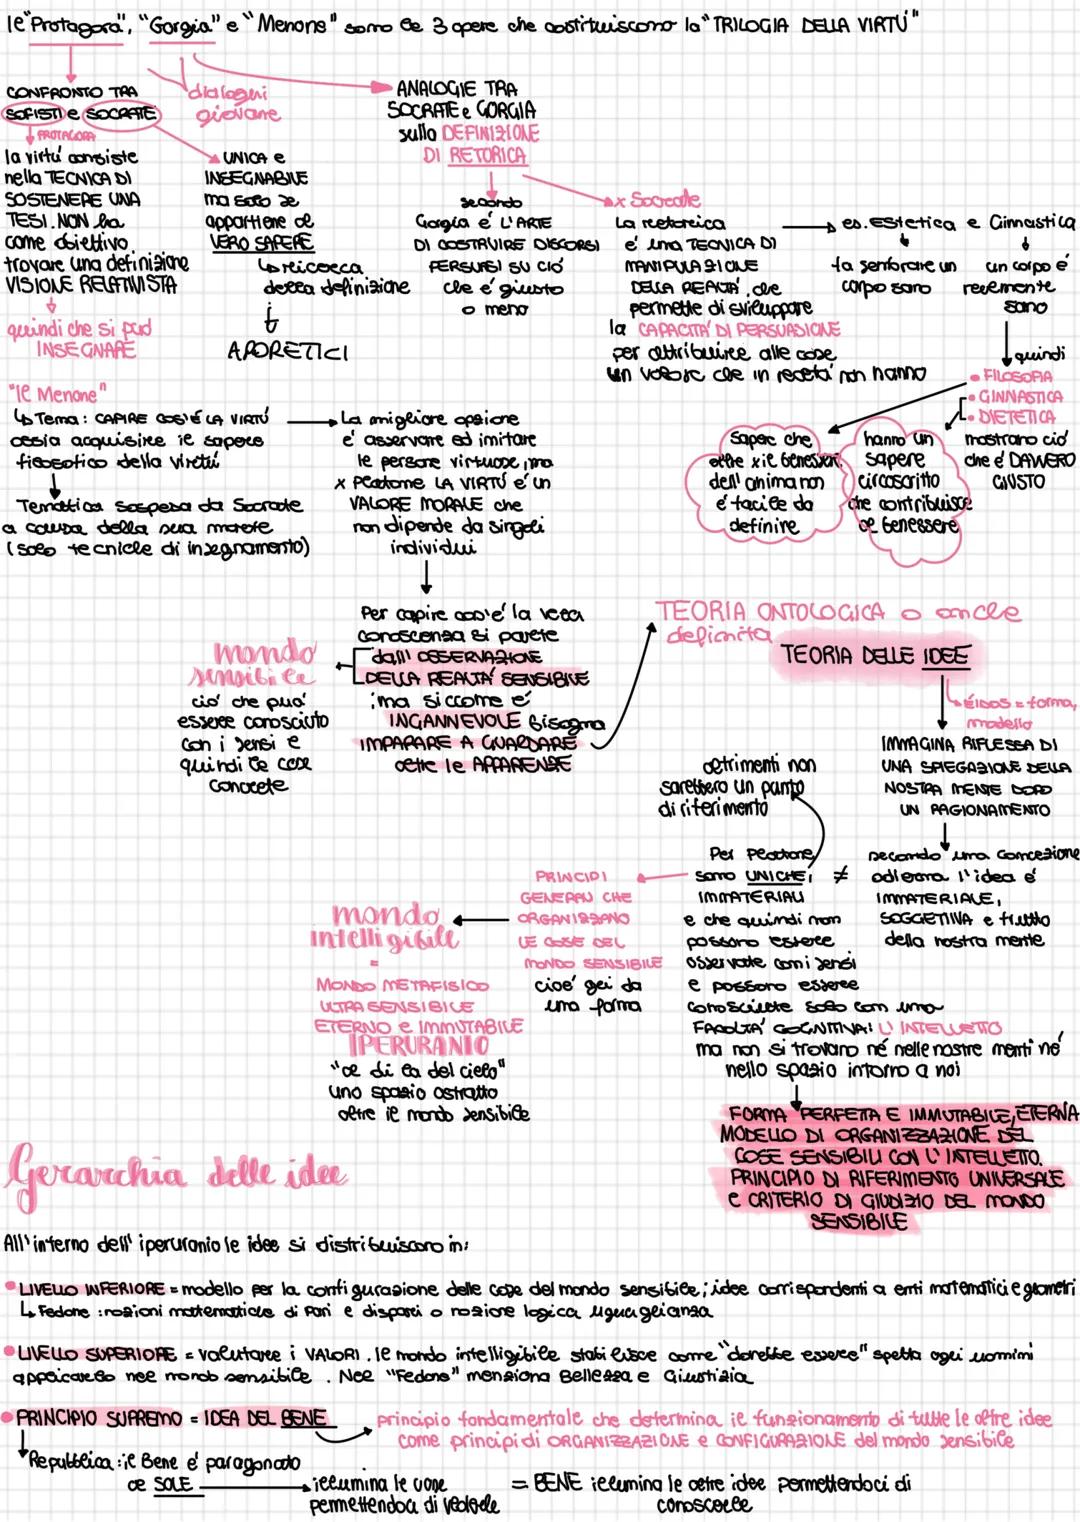 Il "Protagora", "Gorgia" e "Menone" sono le 3 opere che costituiscono la "TRILOGIA DELLA VIRTÚ"
dialoghi
giovane
CONFRONTO TRA
SOFISTI e SOCRATE
PROTAGORA
la virtú consiste
nella TECNICA DI
SOSTENERE UNA
TESI. NON ha
come obiettivo
trovare una definizione
VISIONE RELATIVISTA
quindi che si può
INSEGNARE
UNICA e
INSEGNABILE
ma solo se
appartiene al
VERO SAPERE
ricerca
della definizione
APORETICI
ANALOGIE TRA
SOCRATE e GORGIA
sulla DEFINIZIONE
DI RETORICA
secondo
Gorgia é L'ARTE
DI COSTRUIRE DISCORSI
PERSUASI SU CIÓ
che é giusto
o meno
x Socrate
La retorica
é una TECNICA DI
MANIPULAZIONE
DELLA REALTÁ, che
permette di sviluppare
la CAPACITÁ DI PERSUASIONE
per attribuire alle cose
un valore che in realtá non hanno
es. Estetica e Ginnastica
fa sembrare un
corpo sano
un corpo é
realmente
sano
quindi
• FILOSOFIA
• GINNASTICA
• DIETETICA
mostrano ció
che é DAVVERO
GIUSTO
sapere che
oltre x il benessere
dell'anima non
é facile da
definire
hanno un
sapere
circoscritto
che contribuisce
al benessere
"Il Menone"
Tema: CAPIRE COS'É LA VIRTÚ
ossia acquisire il sapere
filosofico della virtú
Tematica sospesa da Socrate
a causa della sua morte
(solo tecniche di insegnamento)
La migliore opzione
é osservare ed imitare
le persone virtuose, ma
x Platone LA VIRTÚ é un
VALORE MORALE che
non dipende da singoli
individui
Per capire cos'é la vera
conoscenza si parte
dall'OSSERVAZIONE
DELLA REALTÁ SENSIBILE
, ma siccome é
INGANNEVOLE bisogna
IMPARARE A GUARDARE
oltre le APPARENZE
mondo
sensibile
ció che puó
essere conosciuto
con i sensi e
quindi le cose
concrete
TEORIA ONTOLOGICA o anche
definita
TEORIA DELLE IDEE
ÉIDOS = forma,
modello
IMMAGINA RIFLESSA DI
UNA SPIEGAZIONE DELLA
NOSTRA MENTE DOPO
UN RAGIONAMENTO
secondo una concezione
odierna l'idea é
IMMATERIALE,
SOGGETTIVA e frutto
della nostra mente
altrimenti non
sarebbero un punto
di riferimento
Per Platone
sono UNICHE, ≠
IMMATERIALI
e che quindi non
possono essere
osservate con i sensi
e possono essere
conosciute solo con una
FACOLTÁ COGNITIVA: L'INTELLETTO
ma non si trovano né nelle nostre menti né
nello spazio intorno a noi
PRINCIPI
GENERALI CHE
ORGANIZZANO
LE COSE DEL
MONDO SENSIBILE
cioé gli da
una forma
mondo
intelligibile
=
MONDO METAFISICO
ULTRASENSIBILE
ETERNO e IMMUTABILE
IPERURANIO
"al di la del cielo"
uno spazio astratto
oltre il mondo sensibile
FORMA PERFETTA E IMMUTABILE, ETERNA
MODELLO DI ORGANIZZAZIONE DEL
COSE SENSIBILI CON L'INTELLETTO.
PRINCIPIO DI RIFERIMENTO UNIVERSALE
e CRITERIO DI GIUDIZIO DEL MONDO
SENSIBILE
Gerarchia delle idee
All'interno dell'iperuranio le idee si distribuiscono in:
• LIVELLO INFERIORE = modello per la configurazione delle cose del mondo sensibile; idee corrispondenti a enti matematici e geometri
Fedone: nozioni matematiche di Pari e dispari o nozione logica uguaglianza
• LIVELLO SUPERIORE = valutare i VALORI. Il mondo intelligibile stabilisce come "dovrebbe essere" spetta agli uomini
applicarlo nel mondo sensibile. Nel "Fedone" menziona Bellezza e Giustizia
• PRINCIPIO SUPREMO = IDEA DEL BENE
principio fondamentale che determina il funzionamento di tutte le altre idee
come principi di ORGANIZZAZIONE e CONFIGURAZIONE del mondo sensibile
Repubblica: il Bene é paragonato
al SOLE
illumina le cose
permettendoci di vederle
= BENE illumina le altre idee permettendoci di
conoscerle